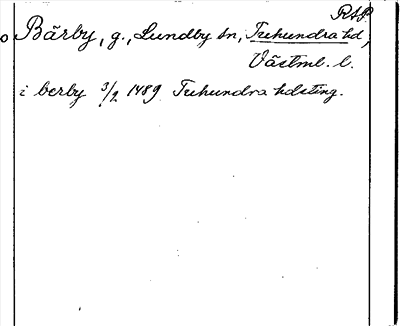 RAP
o Bärby, g., Lundby sn, Tuhundra hd,
Västml. l.
i berby 3/2 1489 Tuhundra hdsting.